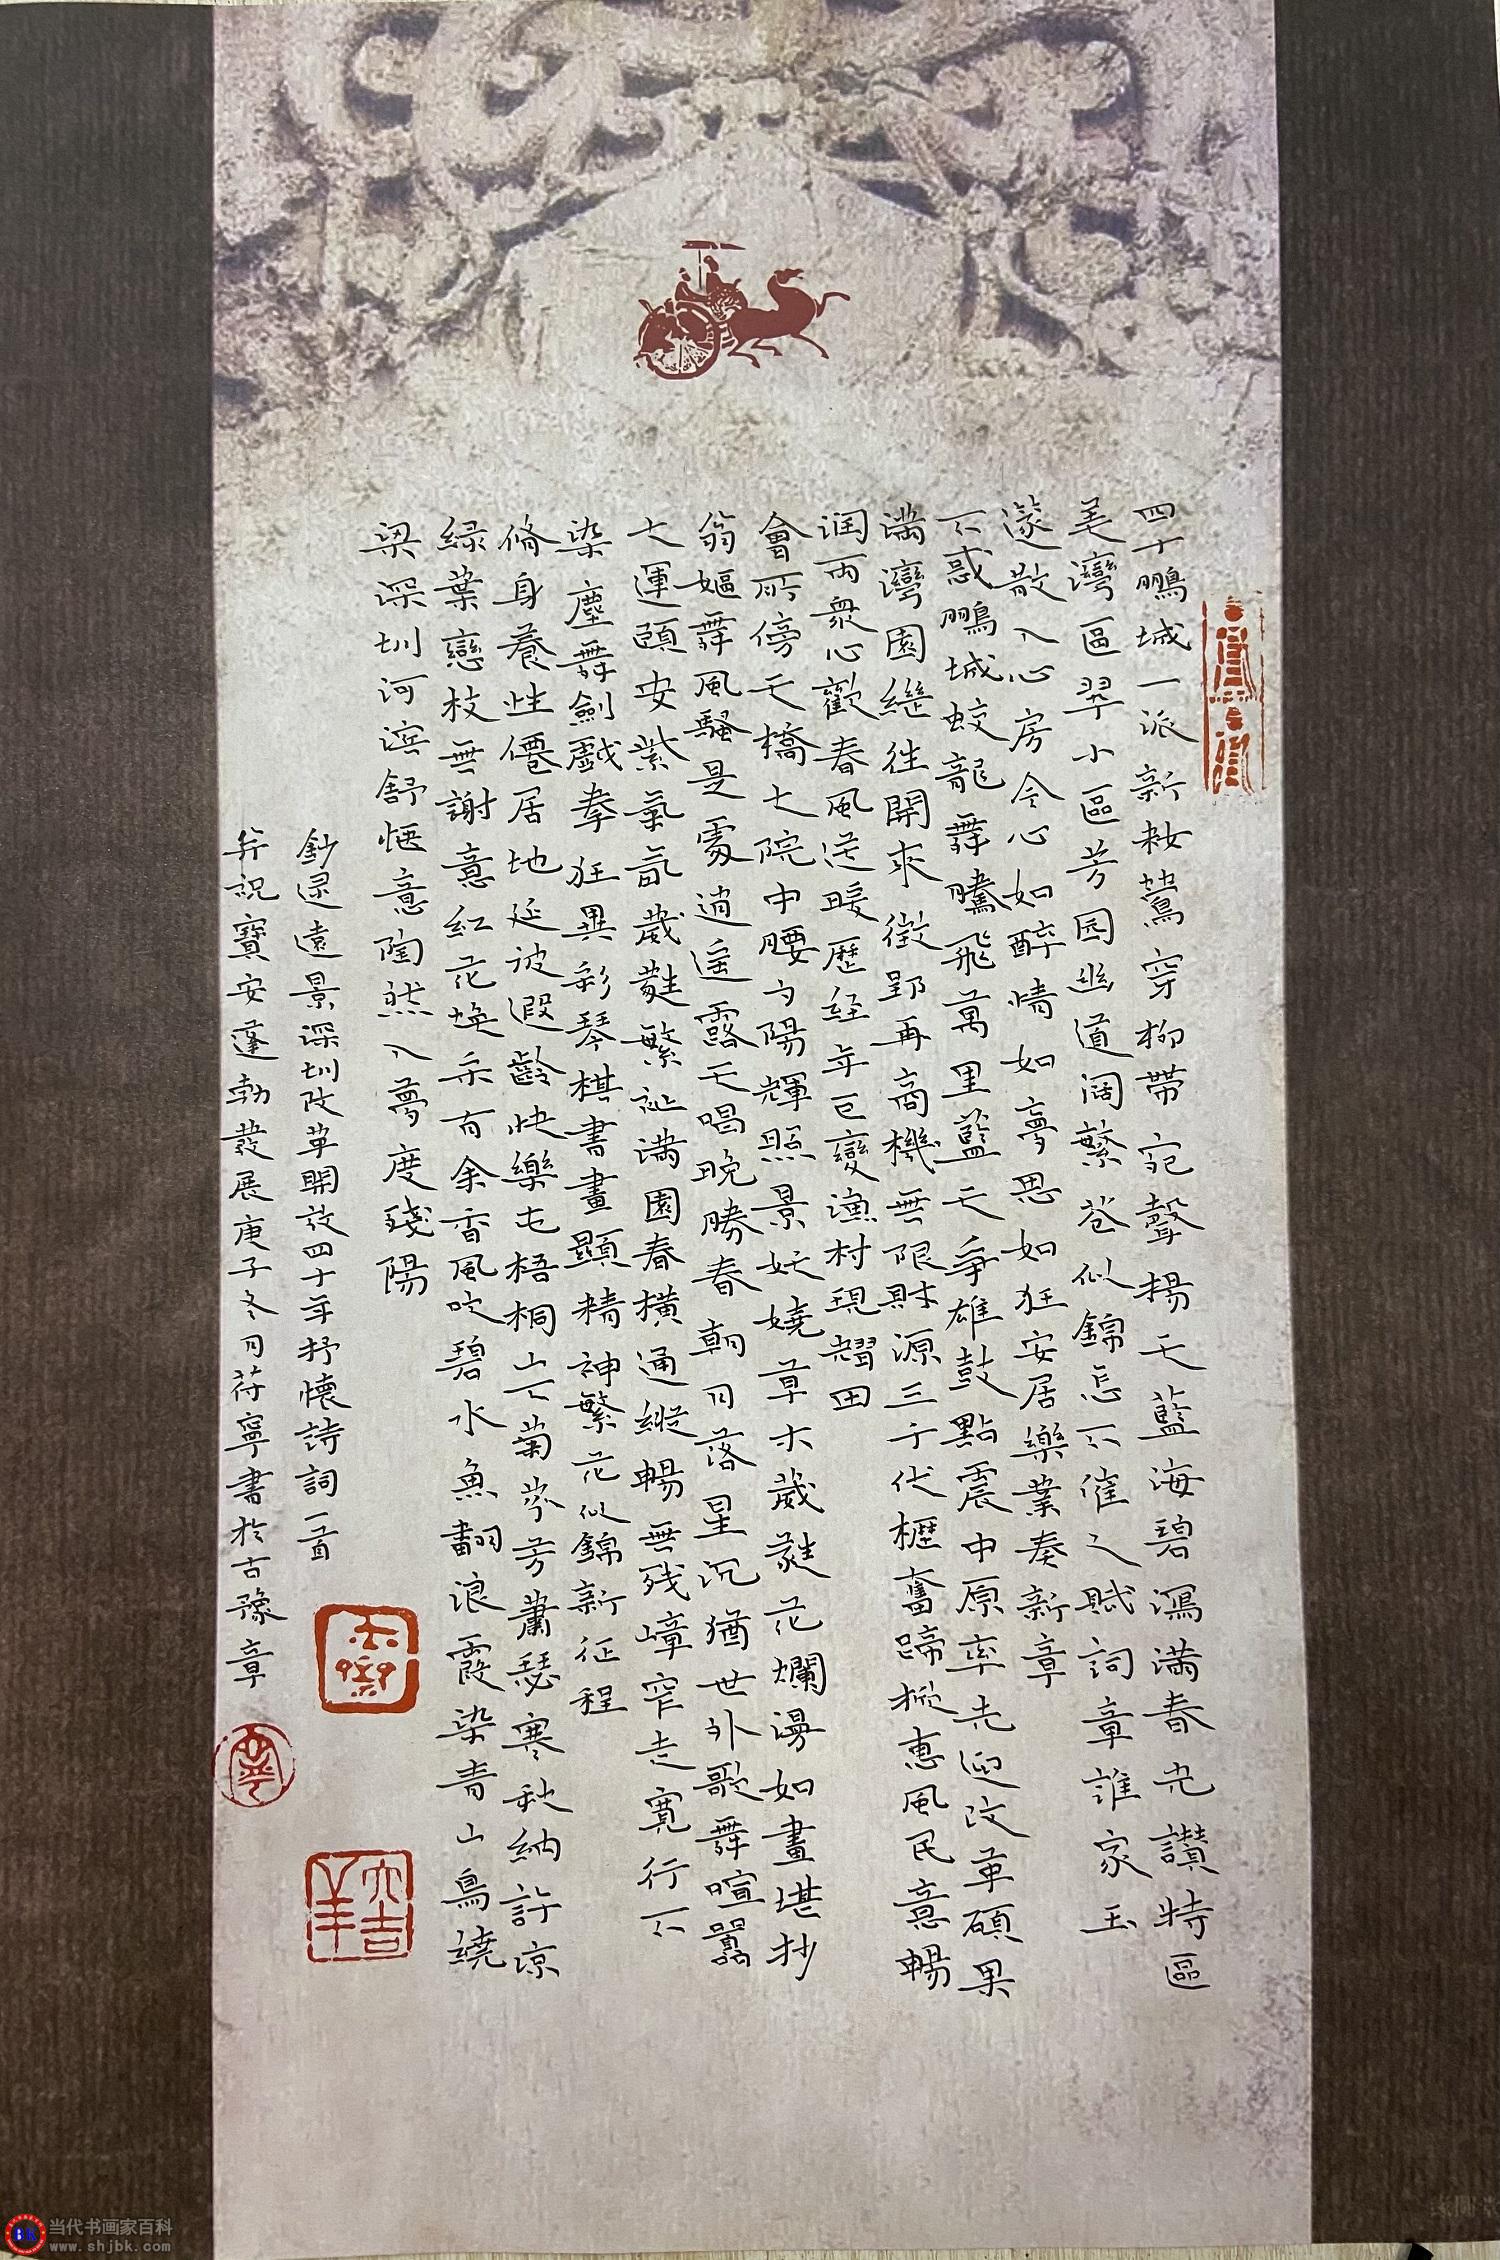 四十鵬城一派新妝鶯穿柳帶宛聲揚天藍海碧瀉滿春光讚特區
美灣區翠小區芳園幽道闊繁花似錦怎不催人賦詞章誰家玉
邃散入心房令心如醉情如夢思如狂安居樂業奏新章
不惑鵬城蛟龍舞騰飛萬里藍天爭雄鼓點震中原率先迎改革碩果
滿灣園繼往開來徵郢再商機無限財源三千伏櫪奮蹄樅惠風民意暢
潤雨衆心歡春風送暖歷經年已變漁村現耀田
會所傍天橋七院中腰夕陽輝照景妖嬈草木葳蕤花爛漫如畫堪抄
翁嫗舞風騷是處逍遙露天唱晚勝春朝月落星沉猶世外歌舞喧囂
七運頤安紫氣氤葳蕤繁祉滿園春橫通縱暢無殘嶂窄走寬行不
染塵舞劍戲拳狂異彩琴棋書畫顯精神繁花似錦新征程
脩身養性僊居地延波遐齡快樂屯梧桐山下菊芬芳蕭瑟寒秋納許涼
綠葉戀枝無謝意紅花換采有余香風吹碧水魚翻浪霞染青山鳥繞
梁深圳河濱舒愜意陶然入夢度殘陽
鈔逯遠景深圳改革開放四十年抒懷詩詞一首
并祝寶安蓬勃發展庚子冬月苻寧書於古豫章
大吉羊
当代书画家百科
www.shjbk.com
BK